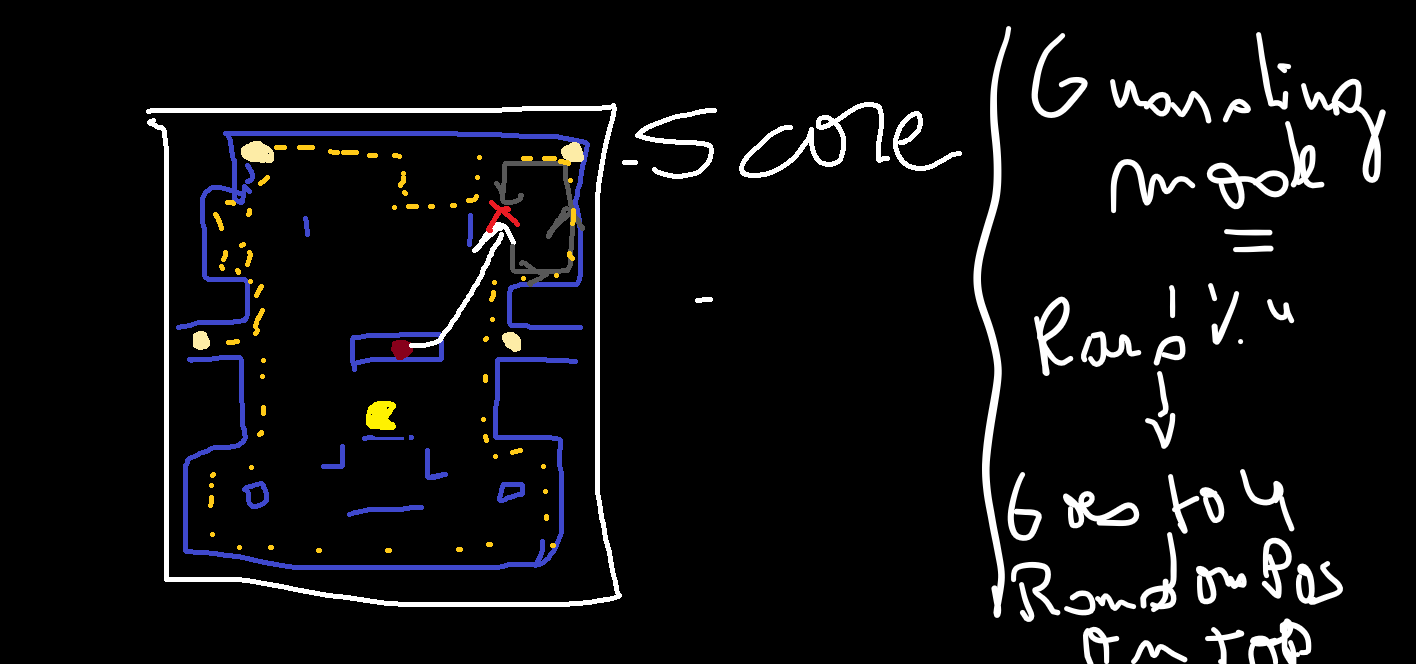 - Score
Guarding
mode
Rand % 4
Goes to 4
Random Pos
on top